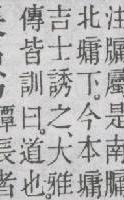 注牖屬是南牖
北墉下。今本墉
吉士誘之、大雅
傳皆訓曰。道也
譚長者